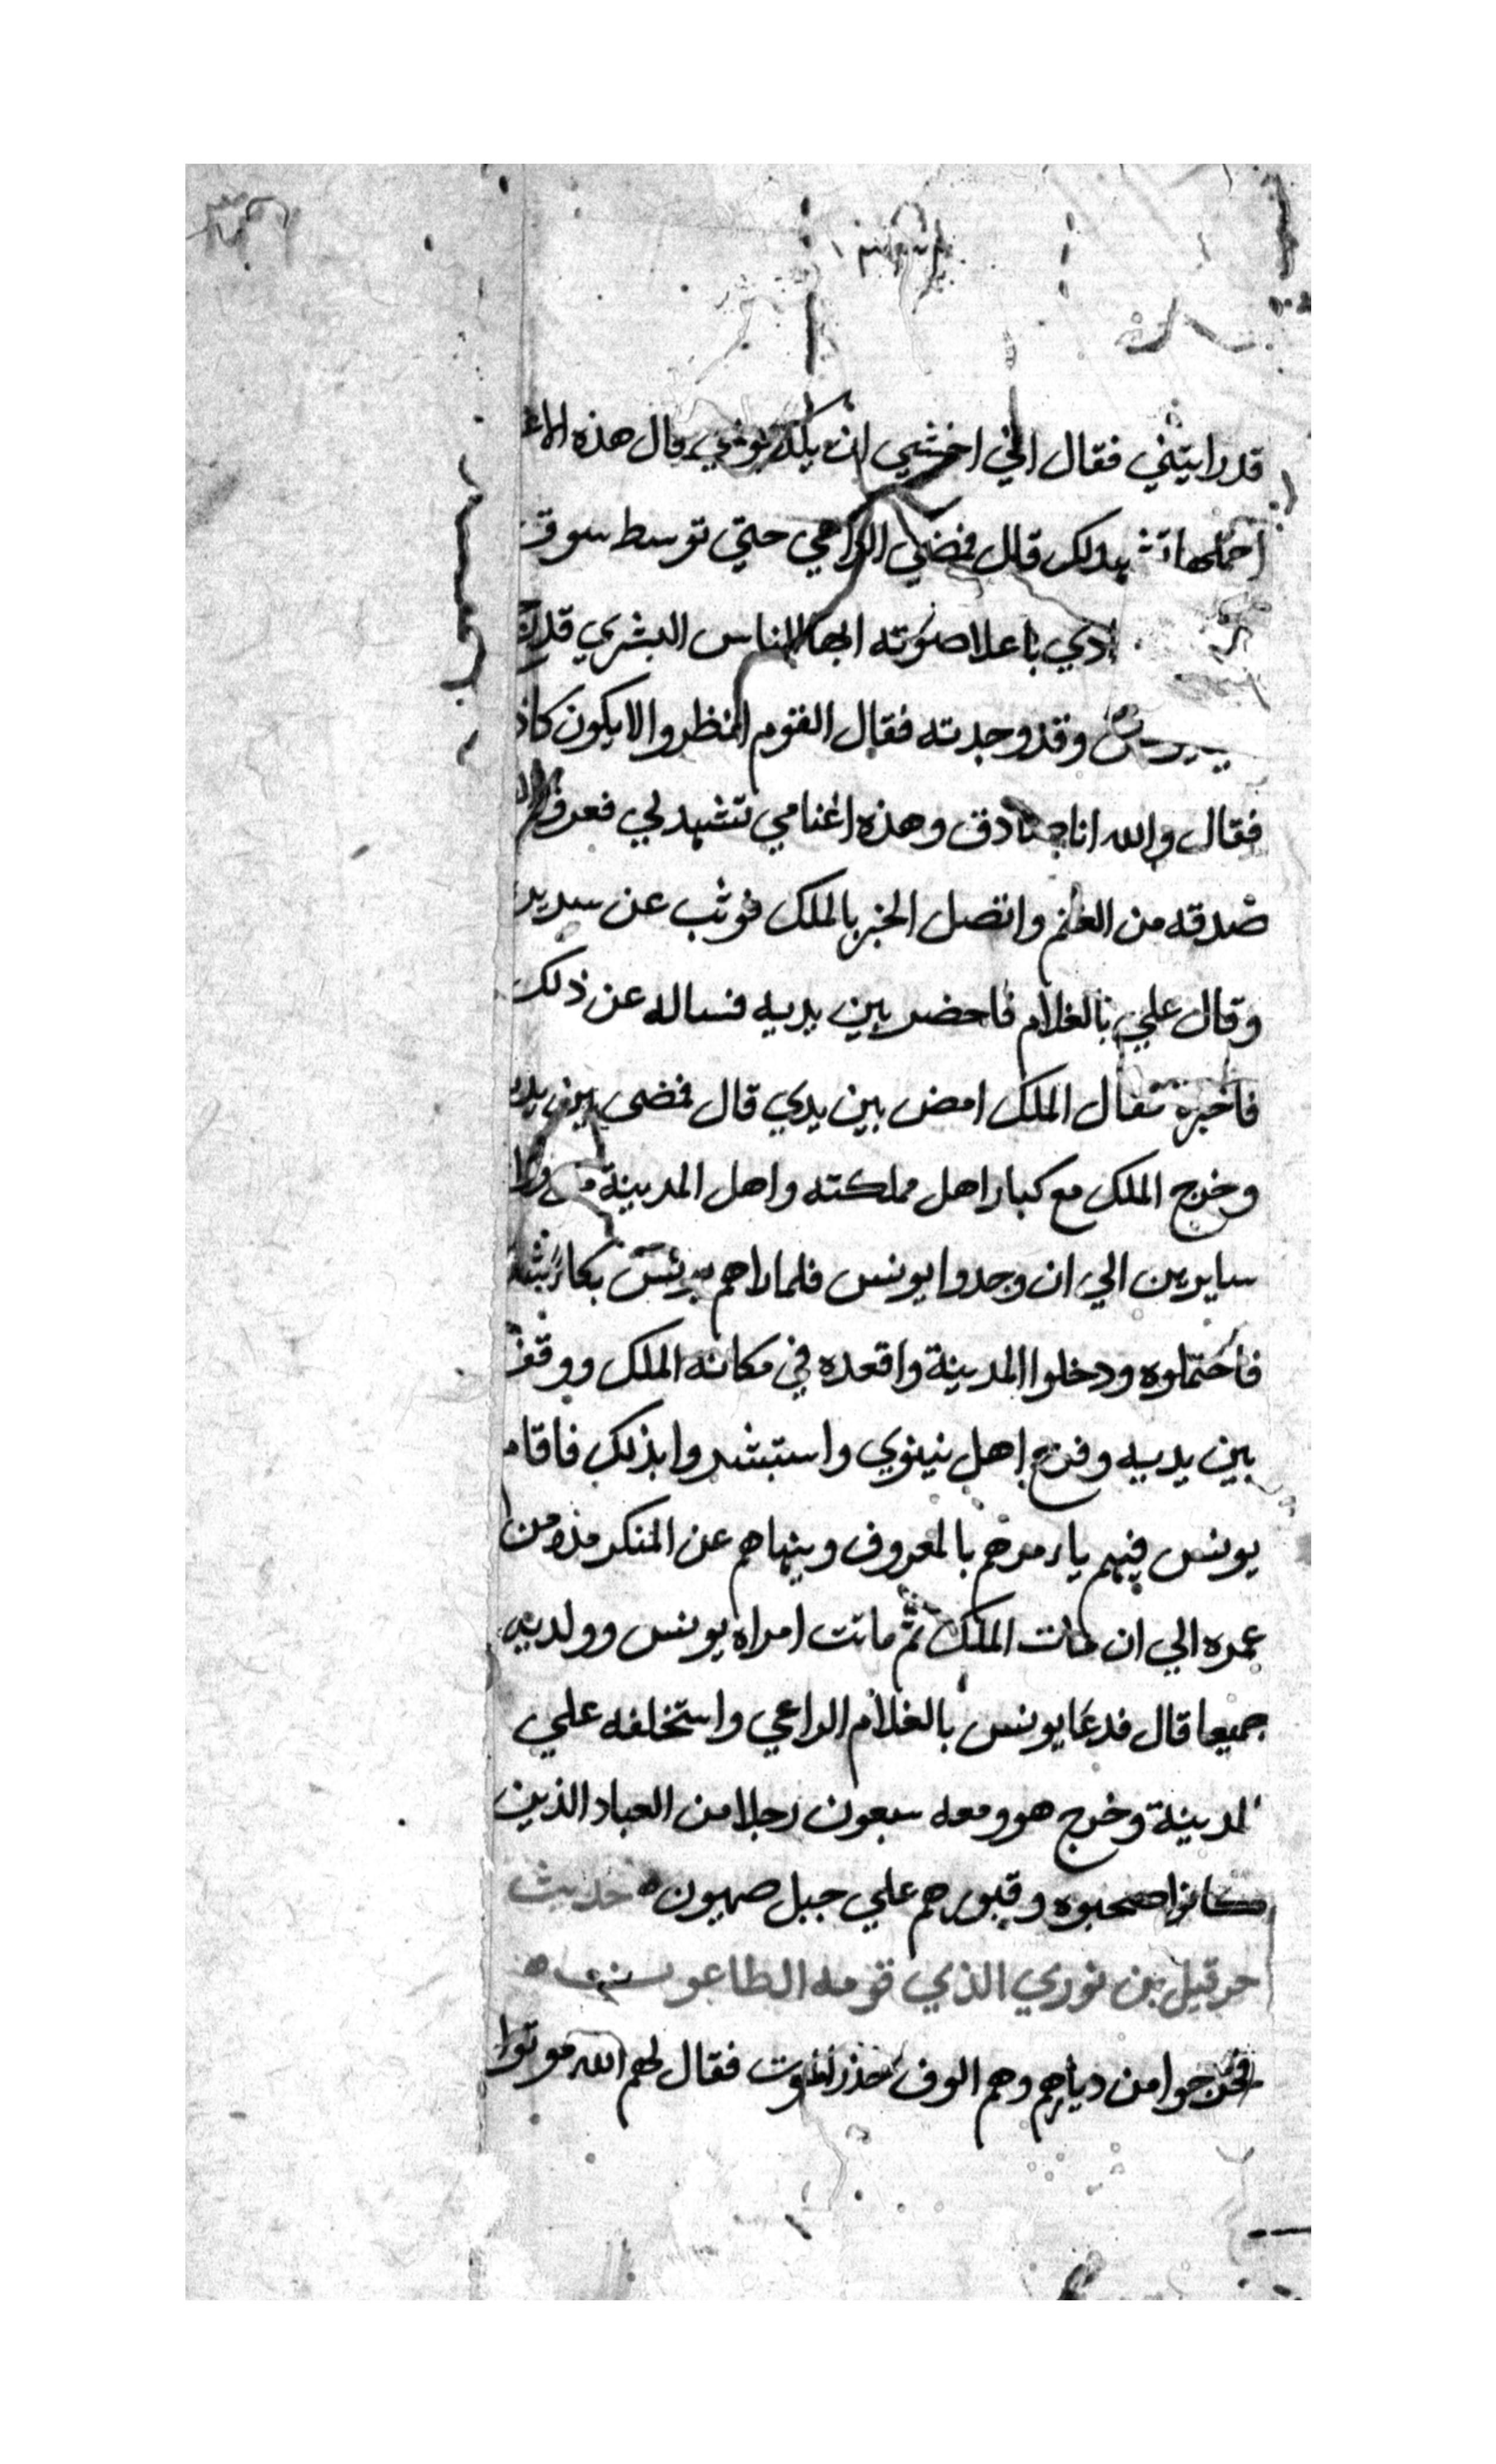 قد رايتني فقال اني اخشي ان يكذبوني قال هذه الاغ
احملها تشهد لك قال فمضي الراعي حتي توسط سوق
نادي باعلا صوته ايها الناس البشري قد
وقد وجدته فقال القوم انظروا الا يكون كاذ
فقال والله انا صادق وهذه اغنامي تشهد لي فعرفوا
صدقه من الغنم واتصل الخبر بالملك فوثب عن سرير
وقال علي بالغلام فاحضر بين يديه فساله عن ذلك
فاخبره فقال الملك امض بين يدي قال فمضى بين يد
وخرج الملك مع كبار اهل مملكته واهل المدينة من ورا
سايرين الي ان وجدوا يونس فلما راهم يونس بكا
فاحتملوه ودخلوا المدينة واقعده في مكانه الملك ووقف
بين يديه وفرح اهل نينوي واستبشروا بذلك فاقام
يونس فيهم يامرهم بالمعروف وينهاهم عن المنكر مدة من
عمره الي ان مات الملك ثم ماتت امراة يونس وولديه
جميعا قال فدعا يونس بالغلام الراعي واستخلفه علي
المدينة وخرج هو ومعه سبعون رجلا من العباد الذين
كانوا صحبوه وقبورهم علي جبل صهيون ه حديث
حرقيل بن نوري الذي قومه الطاعون ه
فخرجوا من ديارهم وهم الوف حذر الموت فقال لهم الله موتوا